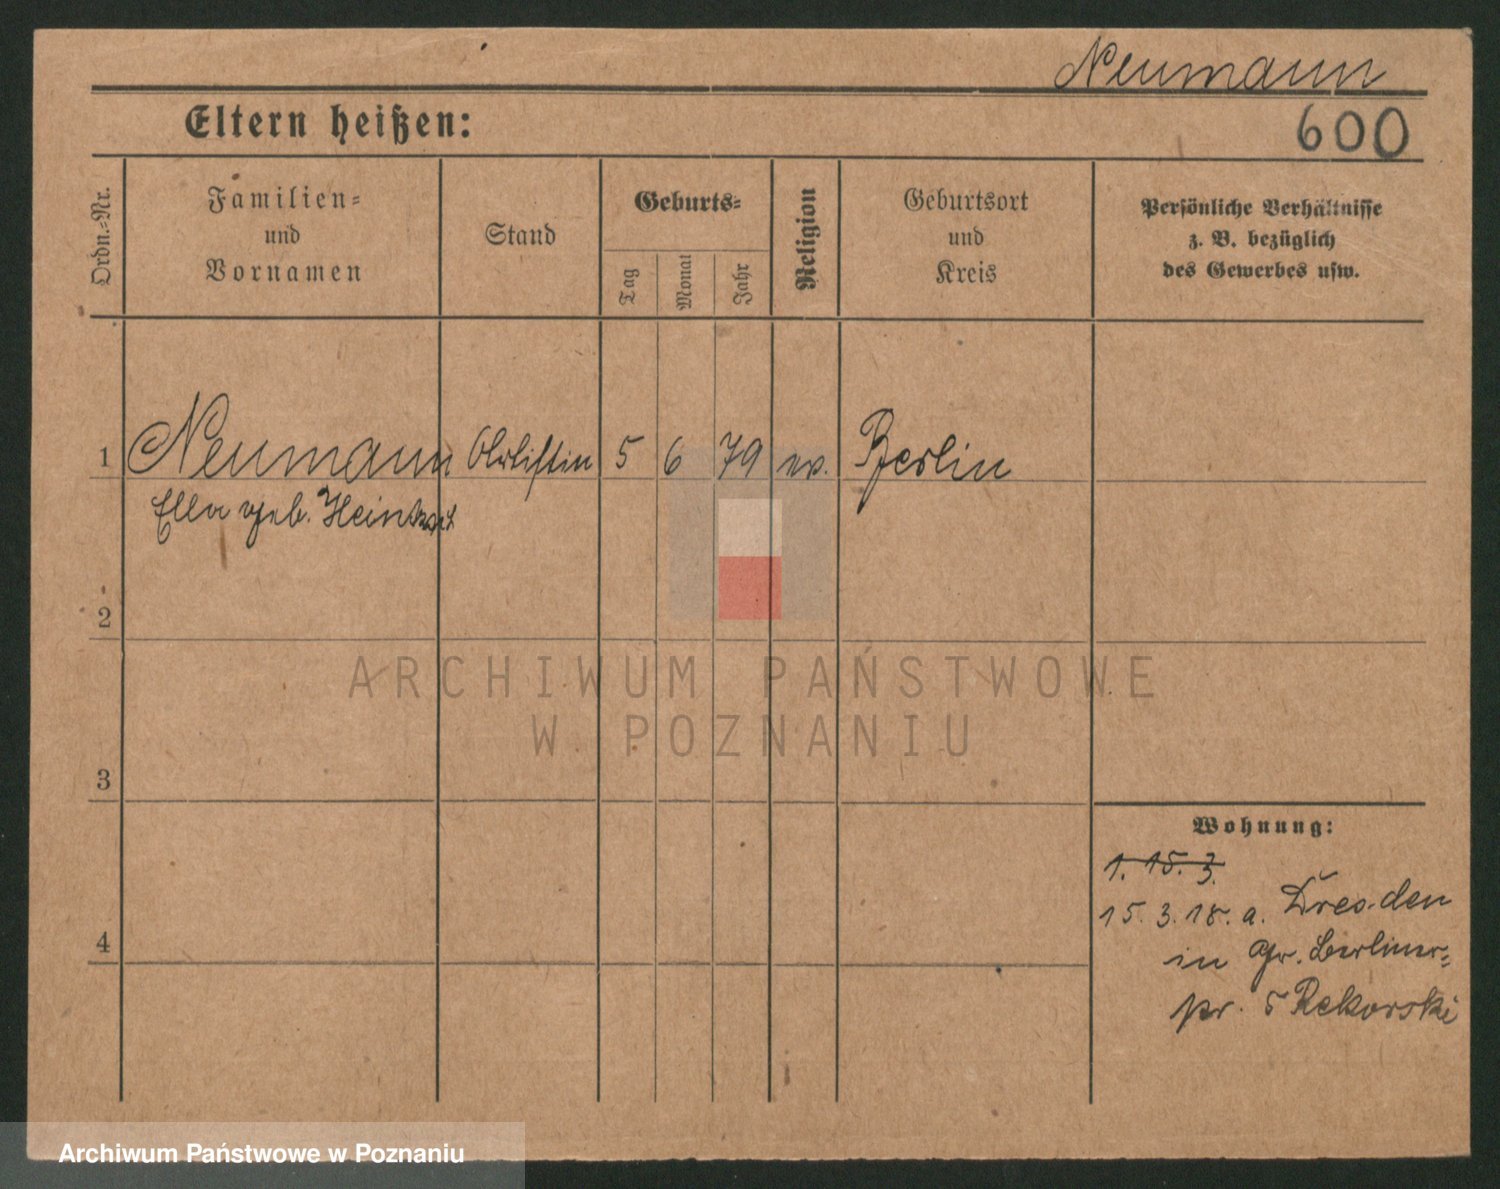 Neumann
Eltern heißen:
600
Ordn.=Nr.
Familien=
und
Vornamen
Stand
Geburts=
Tag
Monat
Jahr
Religion
Geburtsort
und
Kreis
Persönliche Verhältnisse
z. B. bezüglich
des Gewerbes usw.
1 Neumann Artistin 5 6 79 ev. Berlin
Ella geb.
2
3
4
Wohnung:
1. 15. 3.
15. 3. 18. a. Dresden
in Gr. Berliner=
5 Rekorski
ARCHIWUM PAŃSTWOWE
W POZNANIU
Archiwum Państwowe w Poznaniu